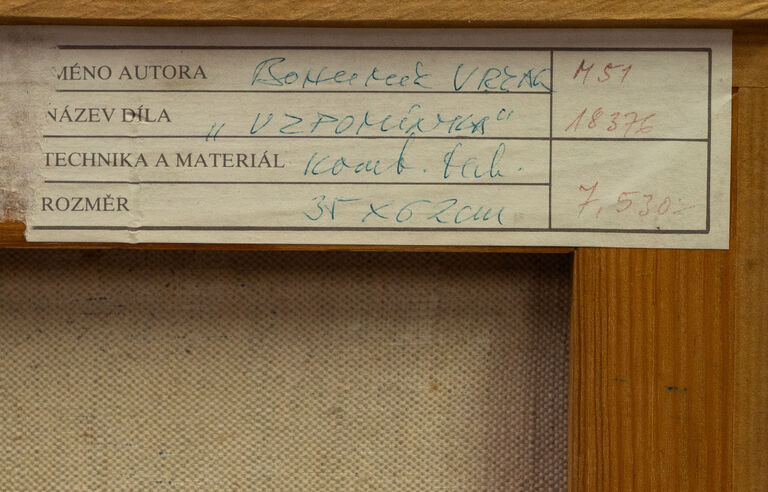 JMÉNO AUTORA Bohumír VRZAC M51
NÁZEV DÍLA „VZPOMÍNKA" 18376
TECHNIKA A MATERIÁL komb. tech.
ROZMĚR 35 x 62 cm 7,530.-